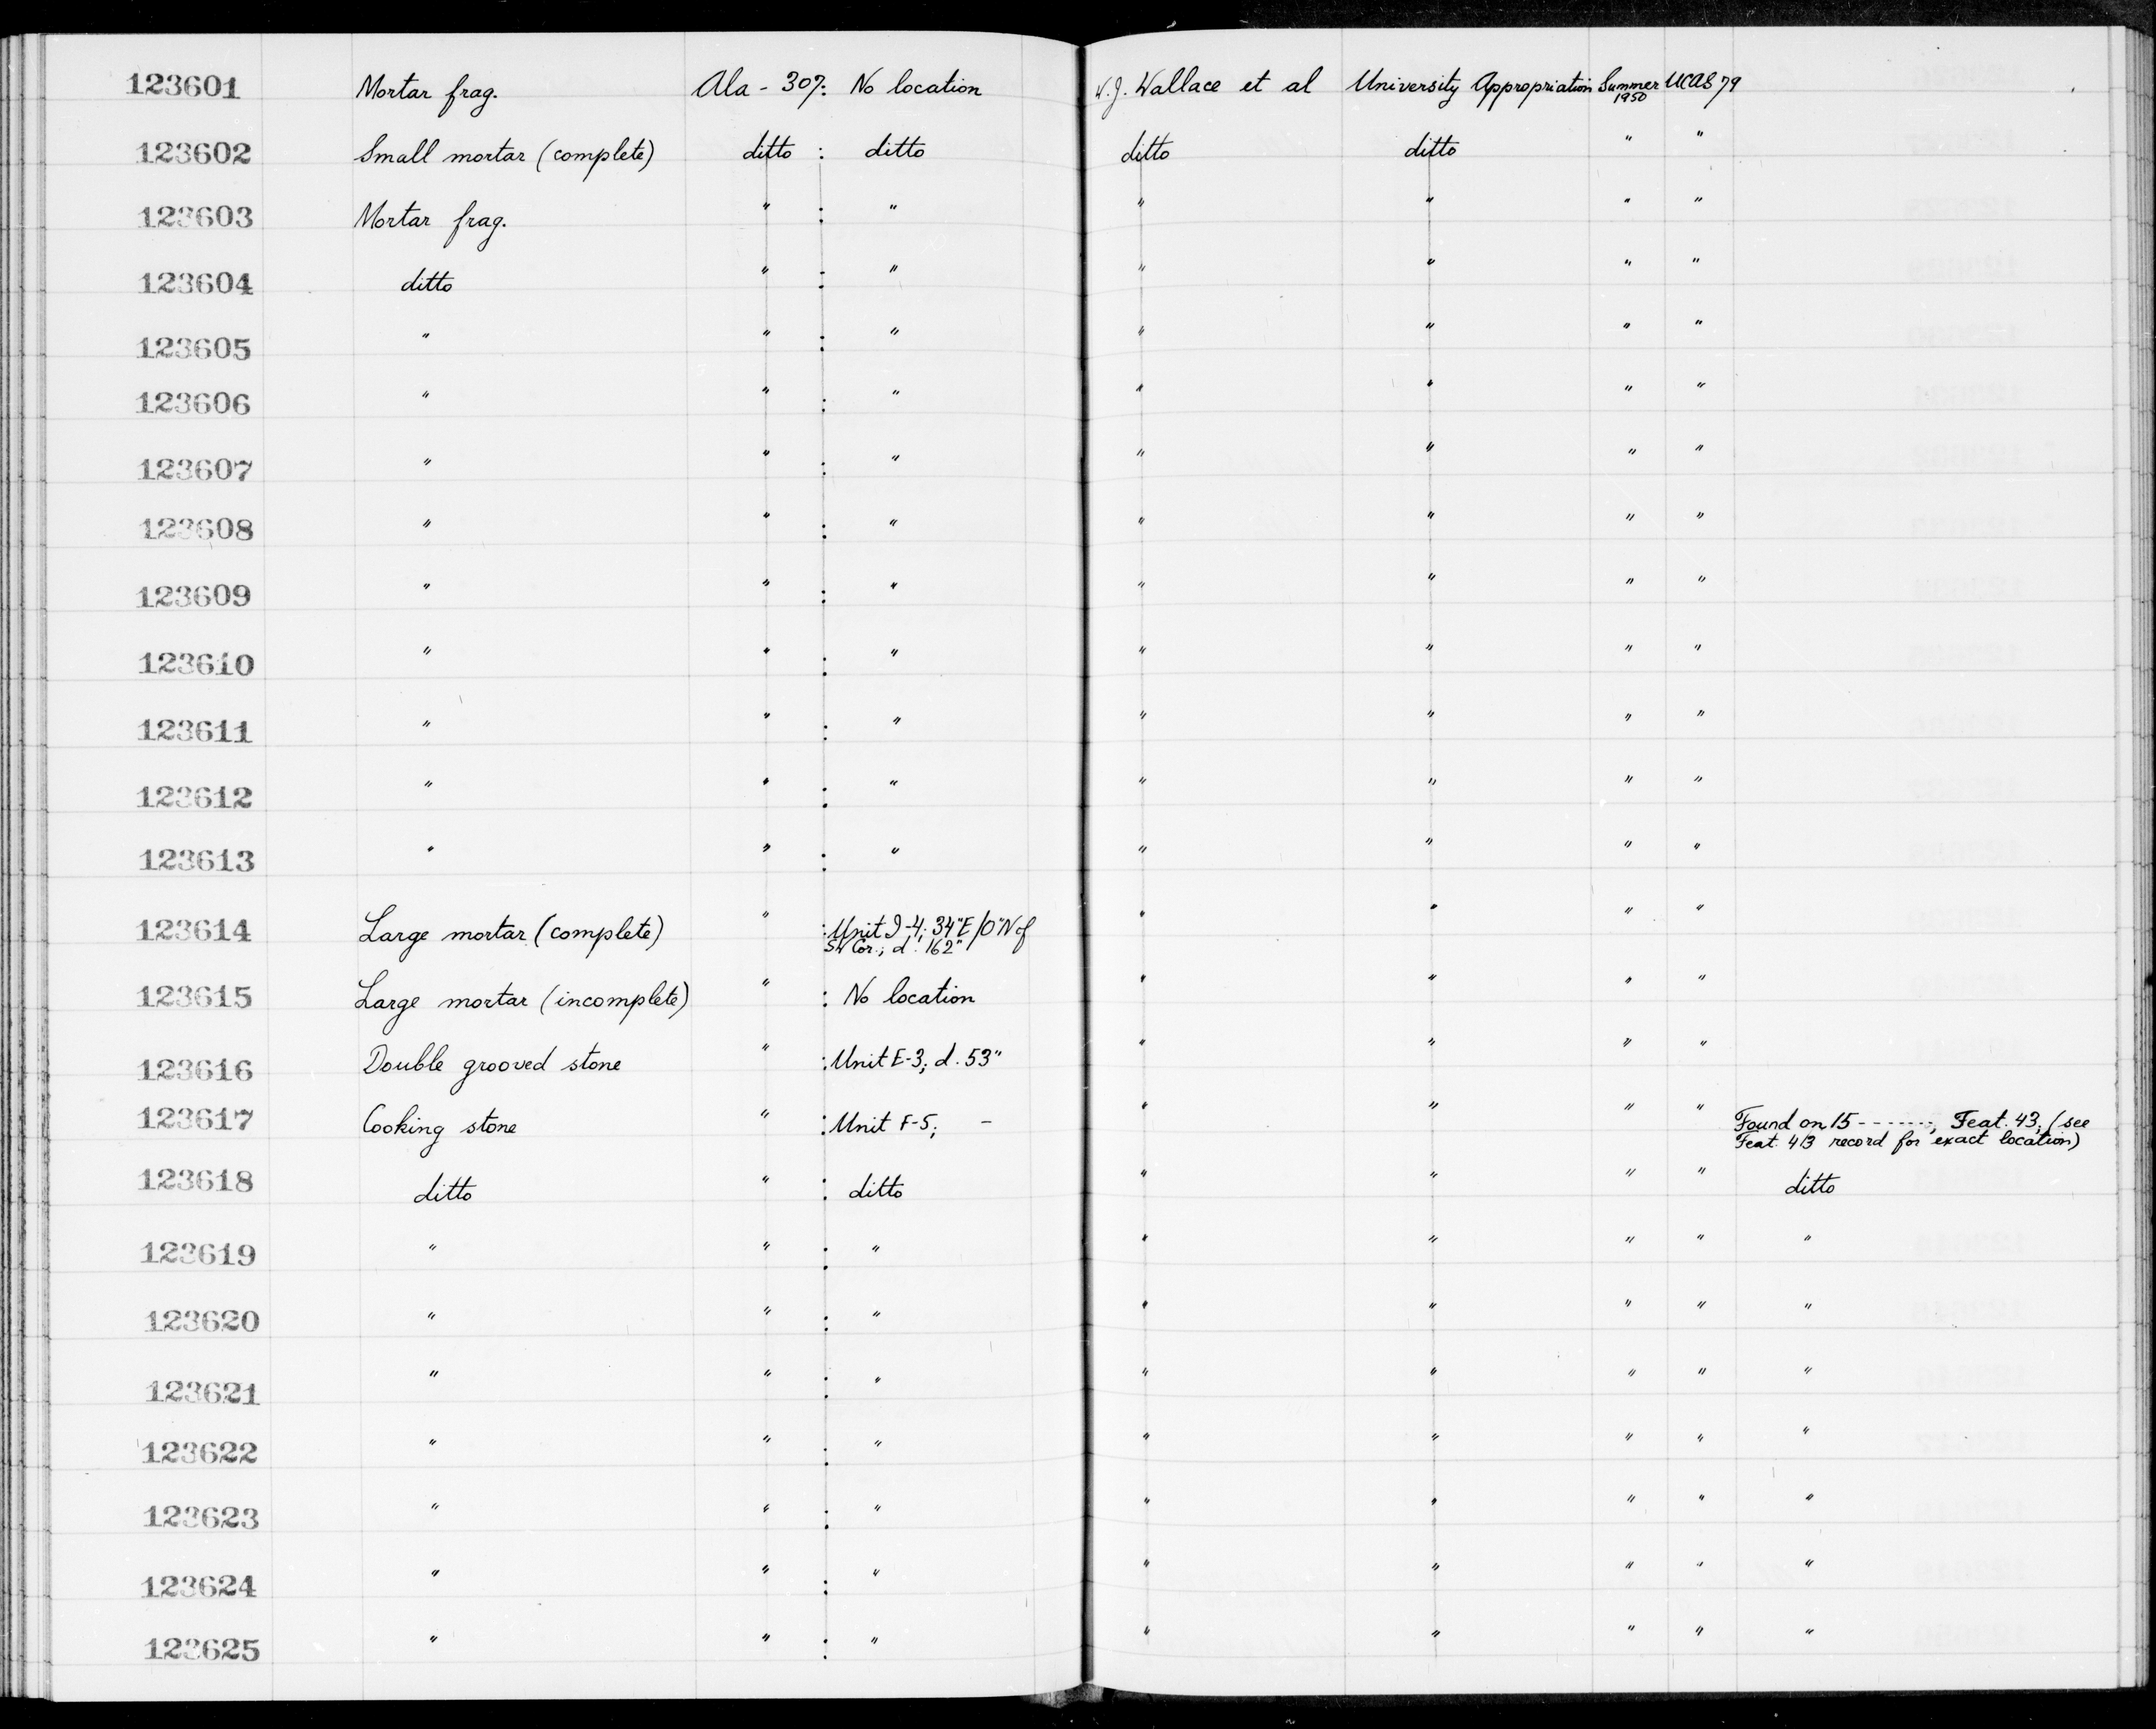 123601 Mortar frag. Ala - 307: No location W.J. Wallace et al University Appropriation Summer 1950 UCAS 79
123602 Small mortar (complete) ditto : ditto ditto ditto " "
123603 Mortar frag. " : " " " " "
123604 ditto " : " " " " "
123605 " " : " " " " "
123606 " " : " " " " "
123607 " " : " " " " "
123608 " " : " " " " "
123609 " " : " " " " "
123610 " " : " " " " "
123611 " " : " " " " "
123612 " " : " " " " "
123613 " " : " " " " "
123614 Large mortar (complete) " : Unit I-4; 34"E/0"N of " " " "
SW Cor.; d. 162"
123615 Large mortar (incomplete) " : No location " " " "
123616 Double grooved stone " : Unit E-3; d. 53" " " " "
123617 Cooking stone " : Unit F-5; - " " " " Found on 15 - - - - - - -, Feat. 43, (see
Feat. 43 record for exact location)
123618 ditto " : ditto " " " " ditto
123619 " " : " " " " " "
123620 " " : " " " " " "
123621 " " : " " " " " "
123622 " " : " " " " " "
123623 " " : " " " " " "
123624 " " : " " " " " "
123625 " " : " " " " " "